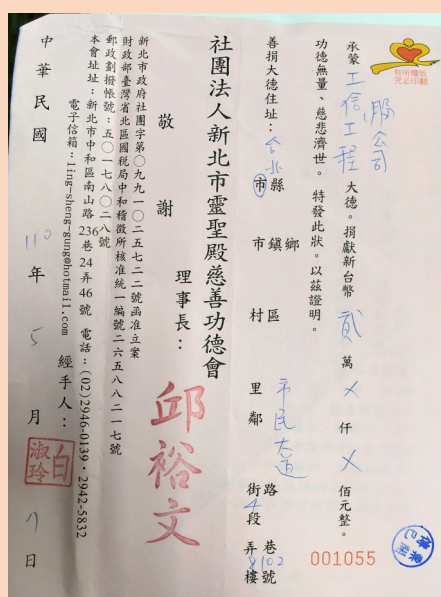 有所權版
究必印翻
承蒙 工信工程 股公司 大德。捐獻新台幣 貳 萬 × 仟 × 佰元整。
功德無量、慈悲濟世。特發此狀。以茲證明。
善捐大德住址：台北 市縣 市鎮鄉 村區 里鄰 市民大道 街路 4段 巷弄 8102 號樓
001055
社團法人新北市靈聖殿慈善功德會
敬謝
理事長：邱裕文
新北市政府社團字第〇九九一〇二五七二二號函准立案
財政部臺灣省北區國稅局中和稽徵所核准統一編號二六五八八二一七號
郵政劃撥帳號：五〇一七八〇二八號
本會址址：新北市中和區南山路236巷24弄46號 電話：(02)2946-0139·2942-5832
電子信箱：ling-sheng-gung@hotmail.com
經手人：白淑玲
中華民國 110 年 5 月 7 日